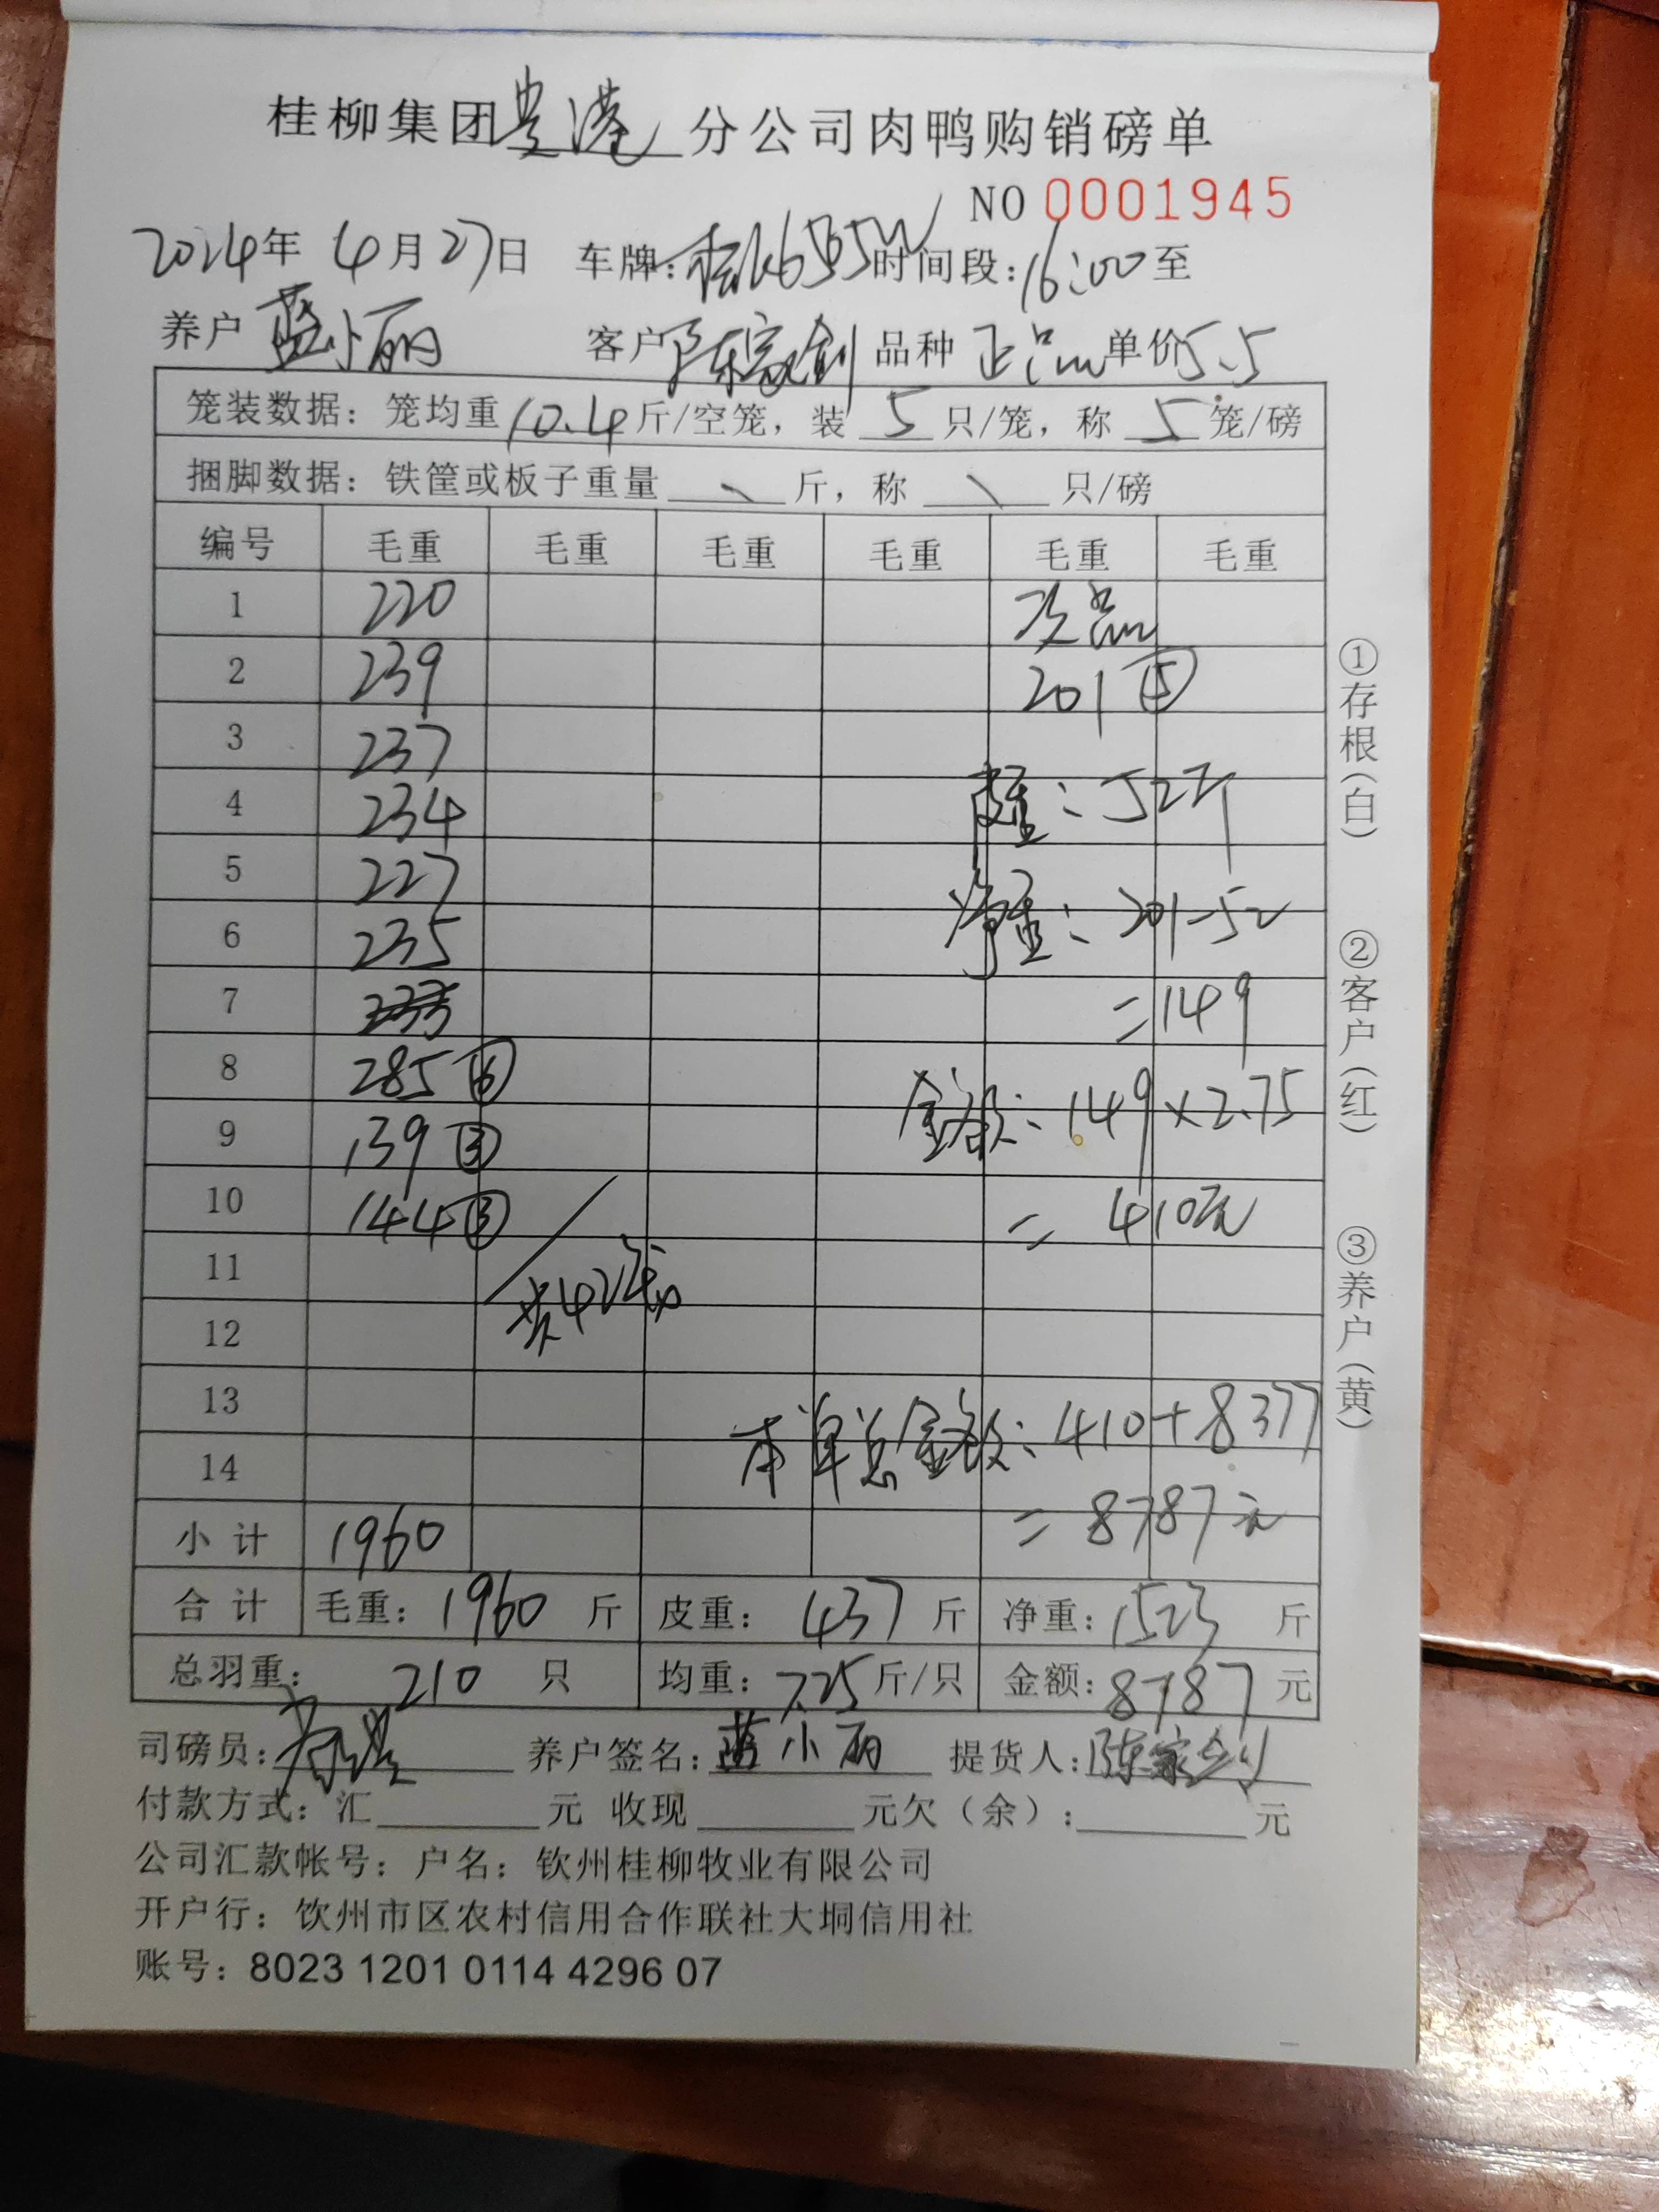 桂柳集团贵港分公司肉鸭购销磅单
NO 0001945
2024年 4月27日 车牌: 时间段:16:00至
养户 蓝小丽 客户 陈家创 品种 正品 单价5.5
笼装数据: 笼均重10.4斤/空笼, 装 5 只/笼, 称 5 笼/磅
捆脚数据: 铁筐或板子重量 \ 斤, 称 \ 只/磅
编号 毛重 毛重 毛重 毛重 毛重 毛重
1 220 次品
2 239 201 ⑤
3 237
4 234 皮重: 52斤
5 227
6 235 净重: 201-52
7 =149
8 285 ⑥ 金额: 149×2.75
9 139 ③
10 144 ③ = 410元
11 共42笼
12
13 本单总金额: 410+8377
14
小计 1960 = 8787元
合计 毛重: 1960 斤 皮重: 437 斤 净重: 1523 斤
总羽重: 210 只 均重: 7.25斤/只 金额: 8787 元
司磅员: 养户签名: 蓝小丽 提货人: 陈家创
付款方式: 汇 元 收现 元欠(余): 元
公司汇款帐号: 户名: 钦州桂柳牧业有限公司
开户行: 钦州市区农村信用合作联社大垌信用社
账号: 8023 1201 0114 4296 07
①存根(白)
②客户(红)
③养户(黄)